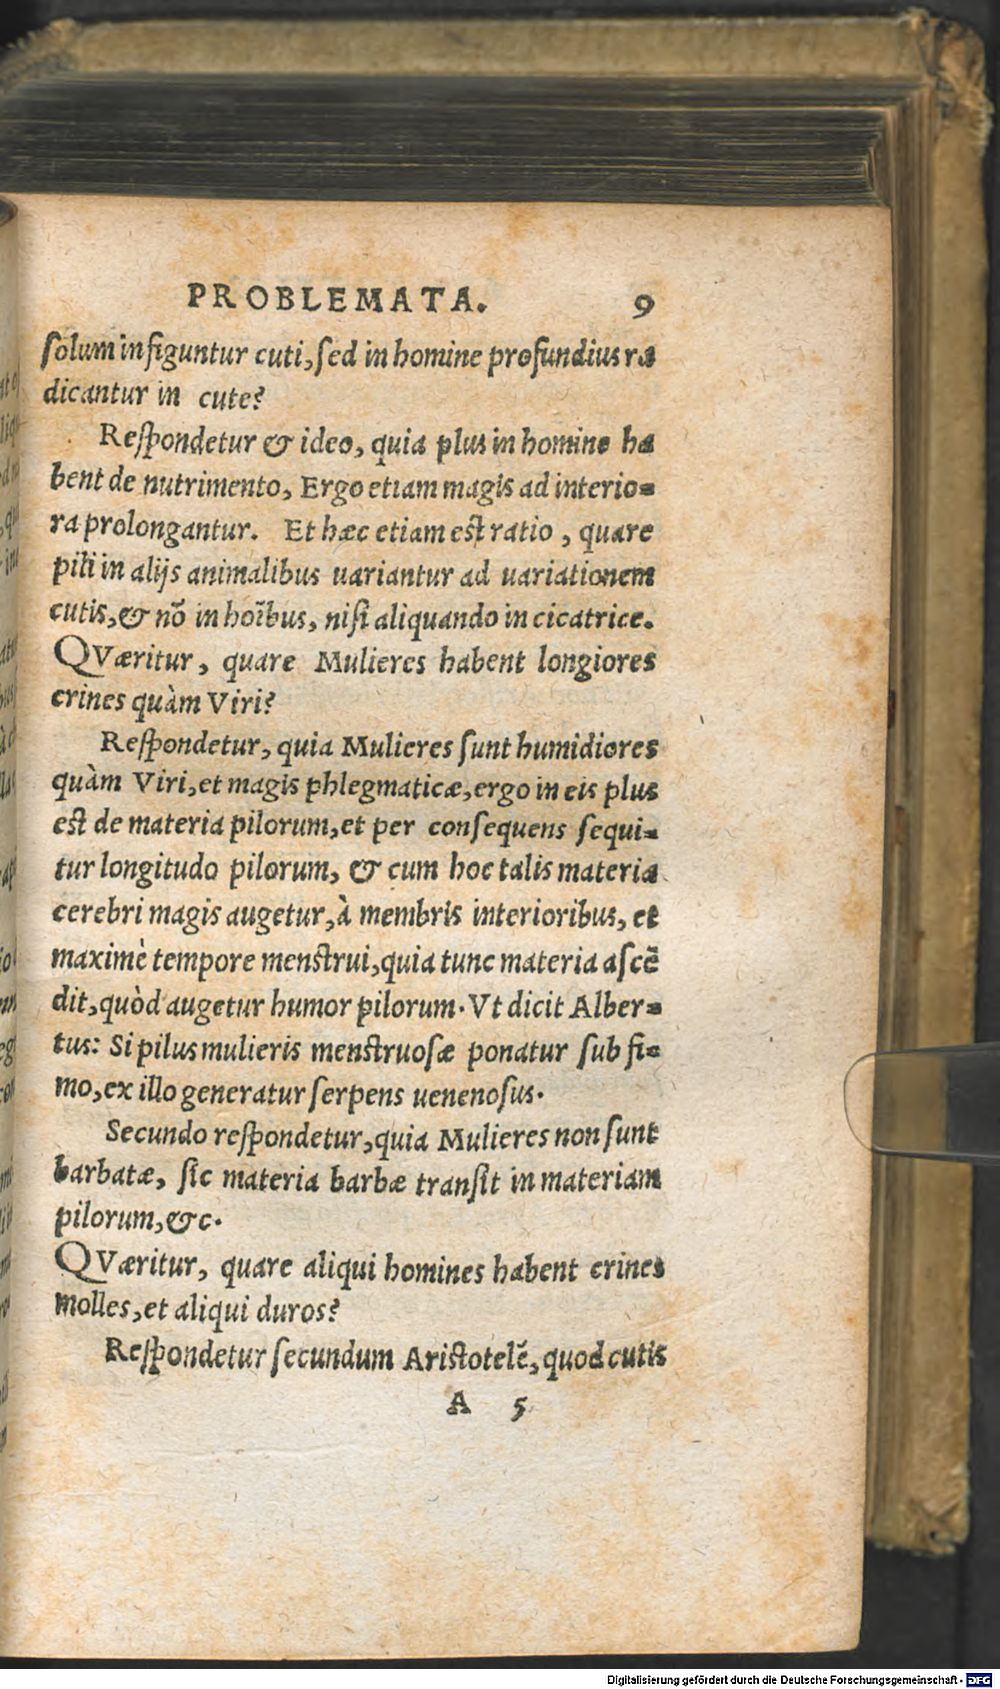 PROBLEMATA. 9
solum infiguntur cuti, sed in homine profundius ra
dicantur in cute?
Respondetur & ideo, quia plus in homine ha
bent de nutrimento, Ergo etiam magis ad interio=
ra prolongantur. Et hæc etiam est ratio, quare
pili in alijs animalibus uariantur ad uariationem
cutis, & nõ in hoĩbus, nisi aliquando in cicatrice.
QVæritur, quare Mulieres habent longiores
crines quàm Viri?
Respondetur, quia Mulieres sunt humidiores
quàm Viri, et magis phlegmaticæ, ergo in eis plus
est de materia pilorum, et per consequens sequi=
tur longitudo pilorum, & cum hoc talis materia
cerebri magis augetur, à membris interioribus, et
maximè tempore menstrui, quia tunc materia ascẽ
dit, quòd augetur humor pilorum. Vt dicit Alber=
tus: Si pilus mulieris menstruosæ ponatur sub fi=
mo, ex illo generatur serpens uenenosus.
Secundo respondetur, quia Mulieres non sunt
barbatæ, sic materia barbæ transit in materiam
pilorum, &c.
QVæritur, quare aliqui homines habent crines
molles, et aliqui duros?
Respondetur secundum Aristotelẽ, quod cutis
A 5
Digitalisierung gefördert durch die Deutsche Forschungsgemeinschaft - DFG